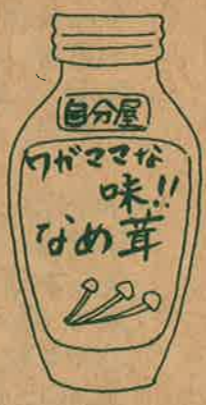 自分屋
ワガママな
味!!
なめ茸